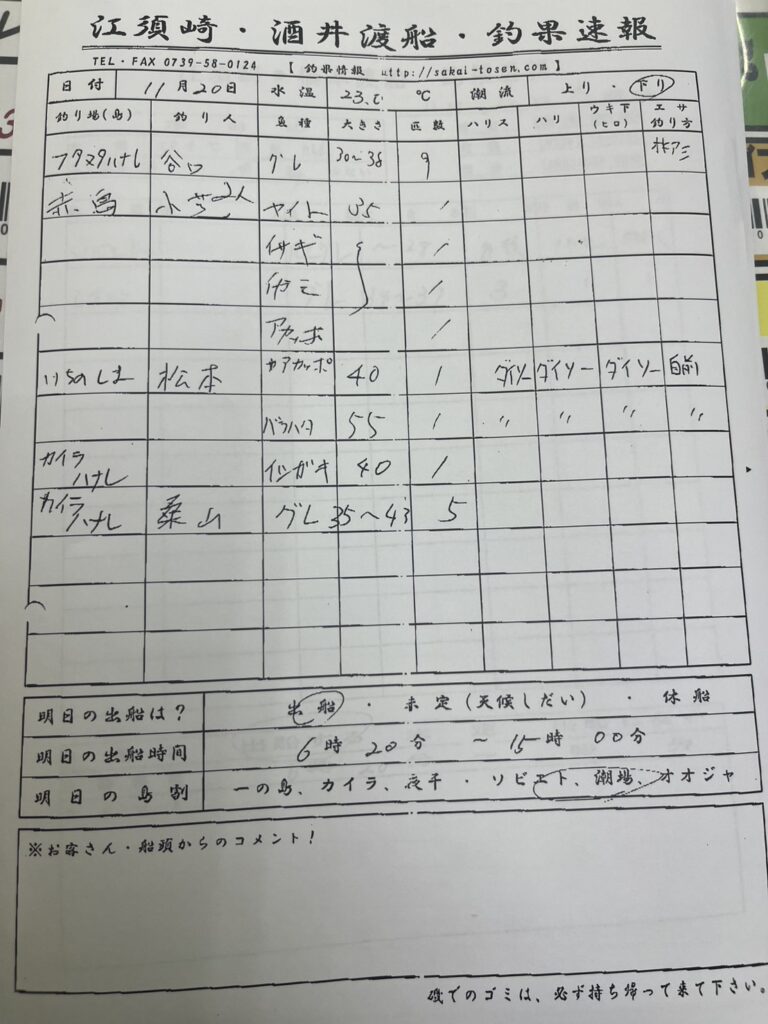 江須崎・酒井渡船・釣果速報
TEL・FAX 0739-58-0124 【 釣果情報 uttp://sakai-tosen.com 】
日付 11月20日 水温 23.0 ℃ 潮流 上り・下り
釣り場(島) 釣り人 魚種 大きさ 匹数 ハリス ハリ ウキ下(ヒロ) エサ釣り方
谷口 グレ 30〜38 9
赤島 小芝2人 ヤイト 35 1
イサギ 1
1
アカッポ 1
いちのしま 松本 アカッポ 40 1 ダイソー ダイソー ダイソー 自前
バラハタ 55 1 〃 〃 〃 〃
カイラハナレ イシガキ 40 1
カイラハナレ 桑山 グレ 35〜43 5
明日の出船は? 出船・未定(天候しだい)・休船
明日の出船時間 6時20分 〜15時00分
明日の島割 一の島、カイラ、夜干・ソビエト、潮場、オオジャ
※お客さん・船頭からのコメント!
磯でのゴミは、必ず持ち帰って来て下さい。